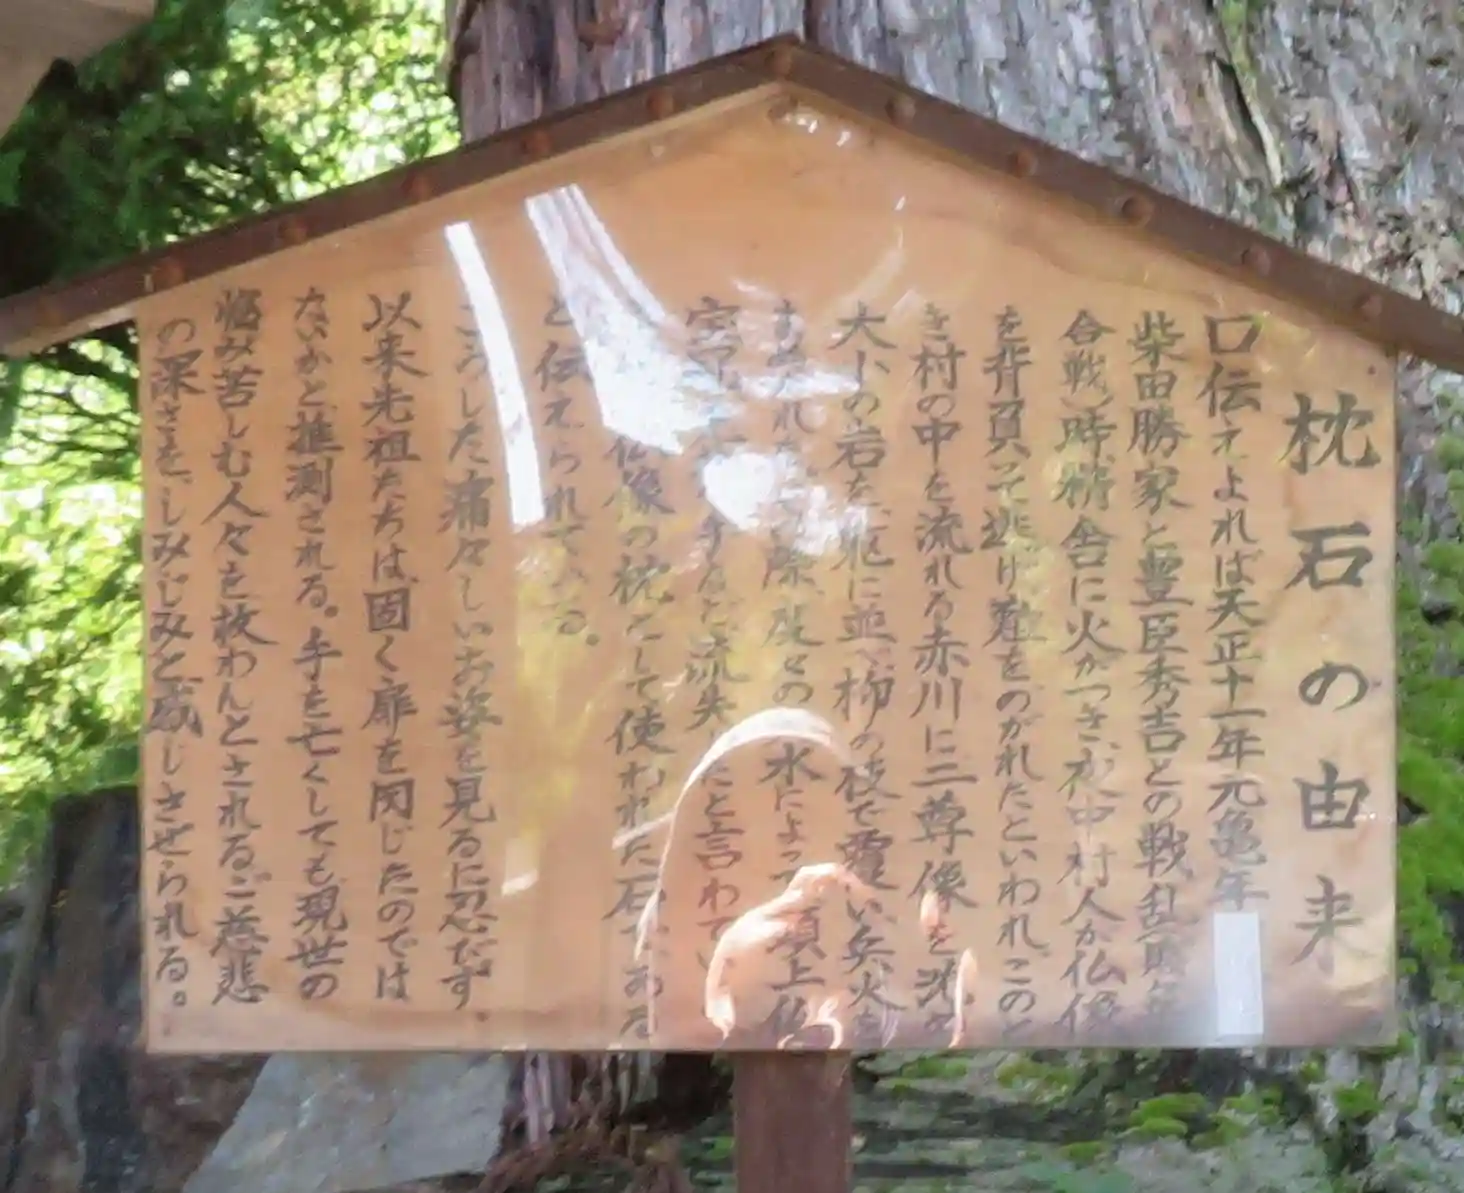 枕石の由来
口伝えよれば天正十一年元亀年
柴田勝家と豊臣秀吉との戦乱
合戦)時、精舎に火がつき、夜中村人が仏像
を背負って逃げ難をのがれたといわれ、このと
き村の中を流れる赤川に三尊像を沈め
大小の岩を に並べ柳の枝で覆い兵火を
際、度々の 水によって 頂上仏
流失したと言わてい
仏像の枕として使われた石である
と伝えられている。
こうした痛々しいお姿を見るに忍だず、
以来先祖たちは、固く扉を閉じたのでは
ないかと推測される。手を亡くしても現世の
悩み苦しむ人々を救わんとされるご慈悲
の深さを、しみじみと感じさせられる。